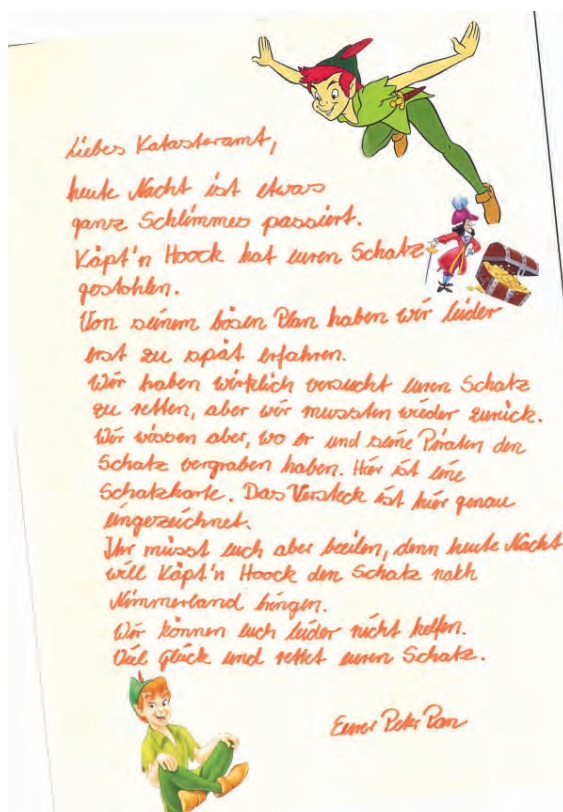 Liebes Katasteramt,
heute Nacht ist etwas
ganz Schlimmes passiert.
Käpt'n Hoock hat euren Schatz
gestohlen.
Von seinem bösen Plan haben wir leider
erst zu spät erfahren.
Wir haben wirklich versucht euren Schatz
zu retten, aber wir mussten wieder zurück.
Wir wissen aber, wo er und seine Piraten den
Schatz vergraben haben. Hier ist eine
Schatzkarte. Das Versteck ist hier genau
eingezeichnet.
Ihr müsst euch aber beeilen, denn heute Nacht
will Käpt'n Hoock den Schatz nach
Nimmerland bringen.
Wir können euch leider nicht helfen.
Viel Glück und rettet euren Schatz.
Eurer Peter Pan